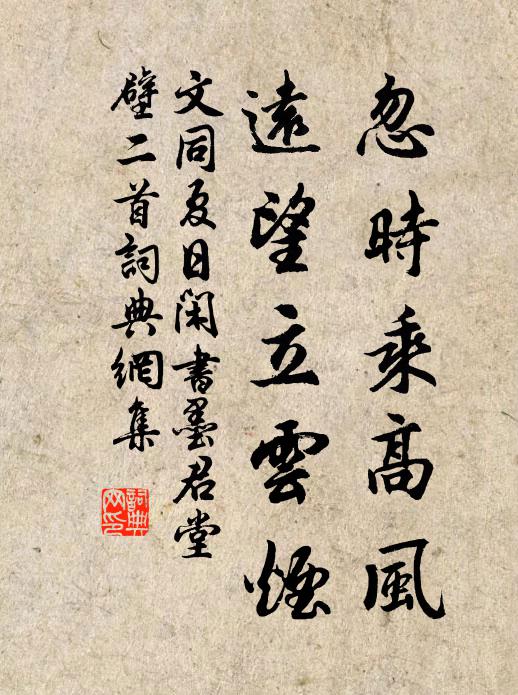 忽時乘高風
遠望立雲煙
文同夏日閑書墨君堂
壁二首詞典網集
詞典網印